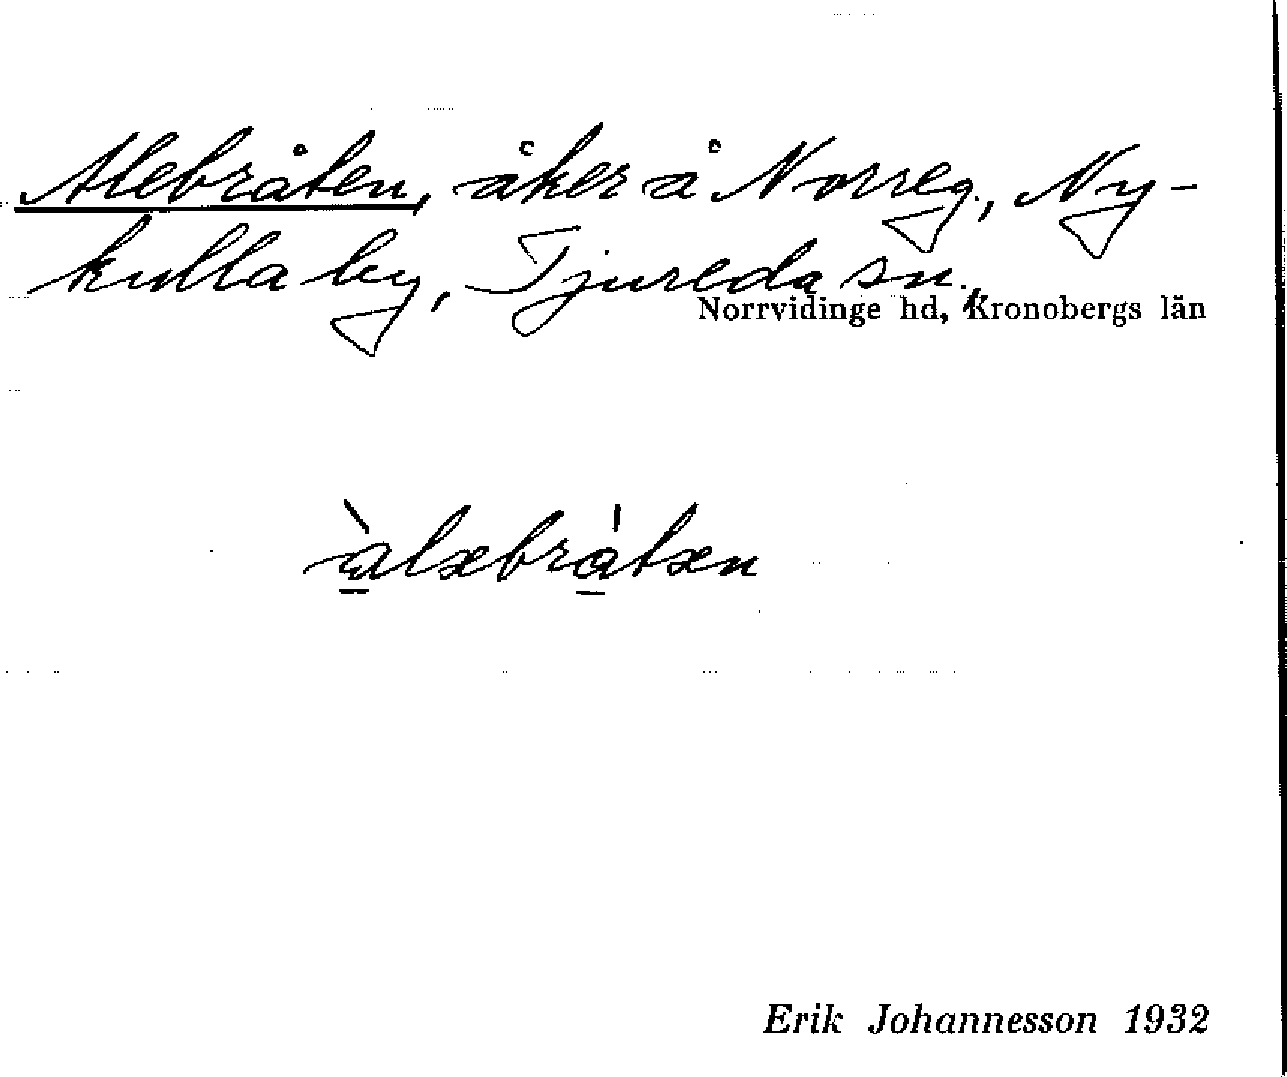 Alebråten, åker å Norreg., Ny-
kulla by, Tjureda sn.,
Norrvidinge hd, Kronobergs län
àlæbrátæn
Erik Johannesson 1932